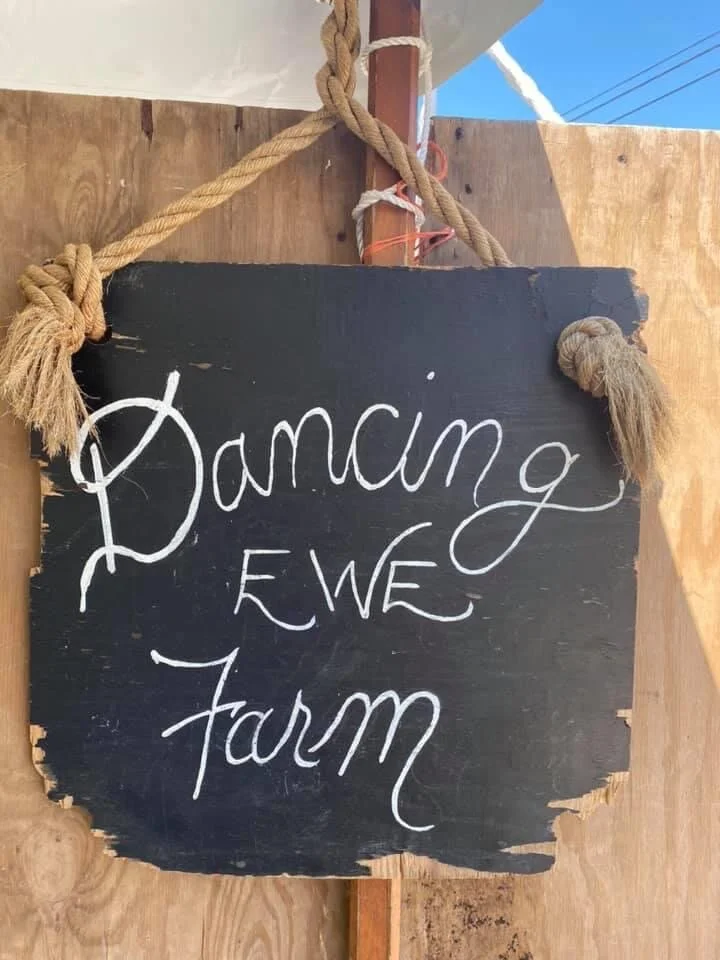 Dancing
EWE
Farm